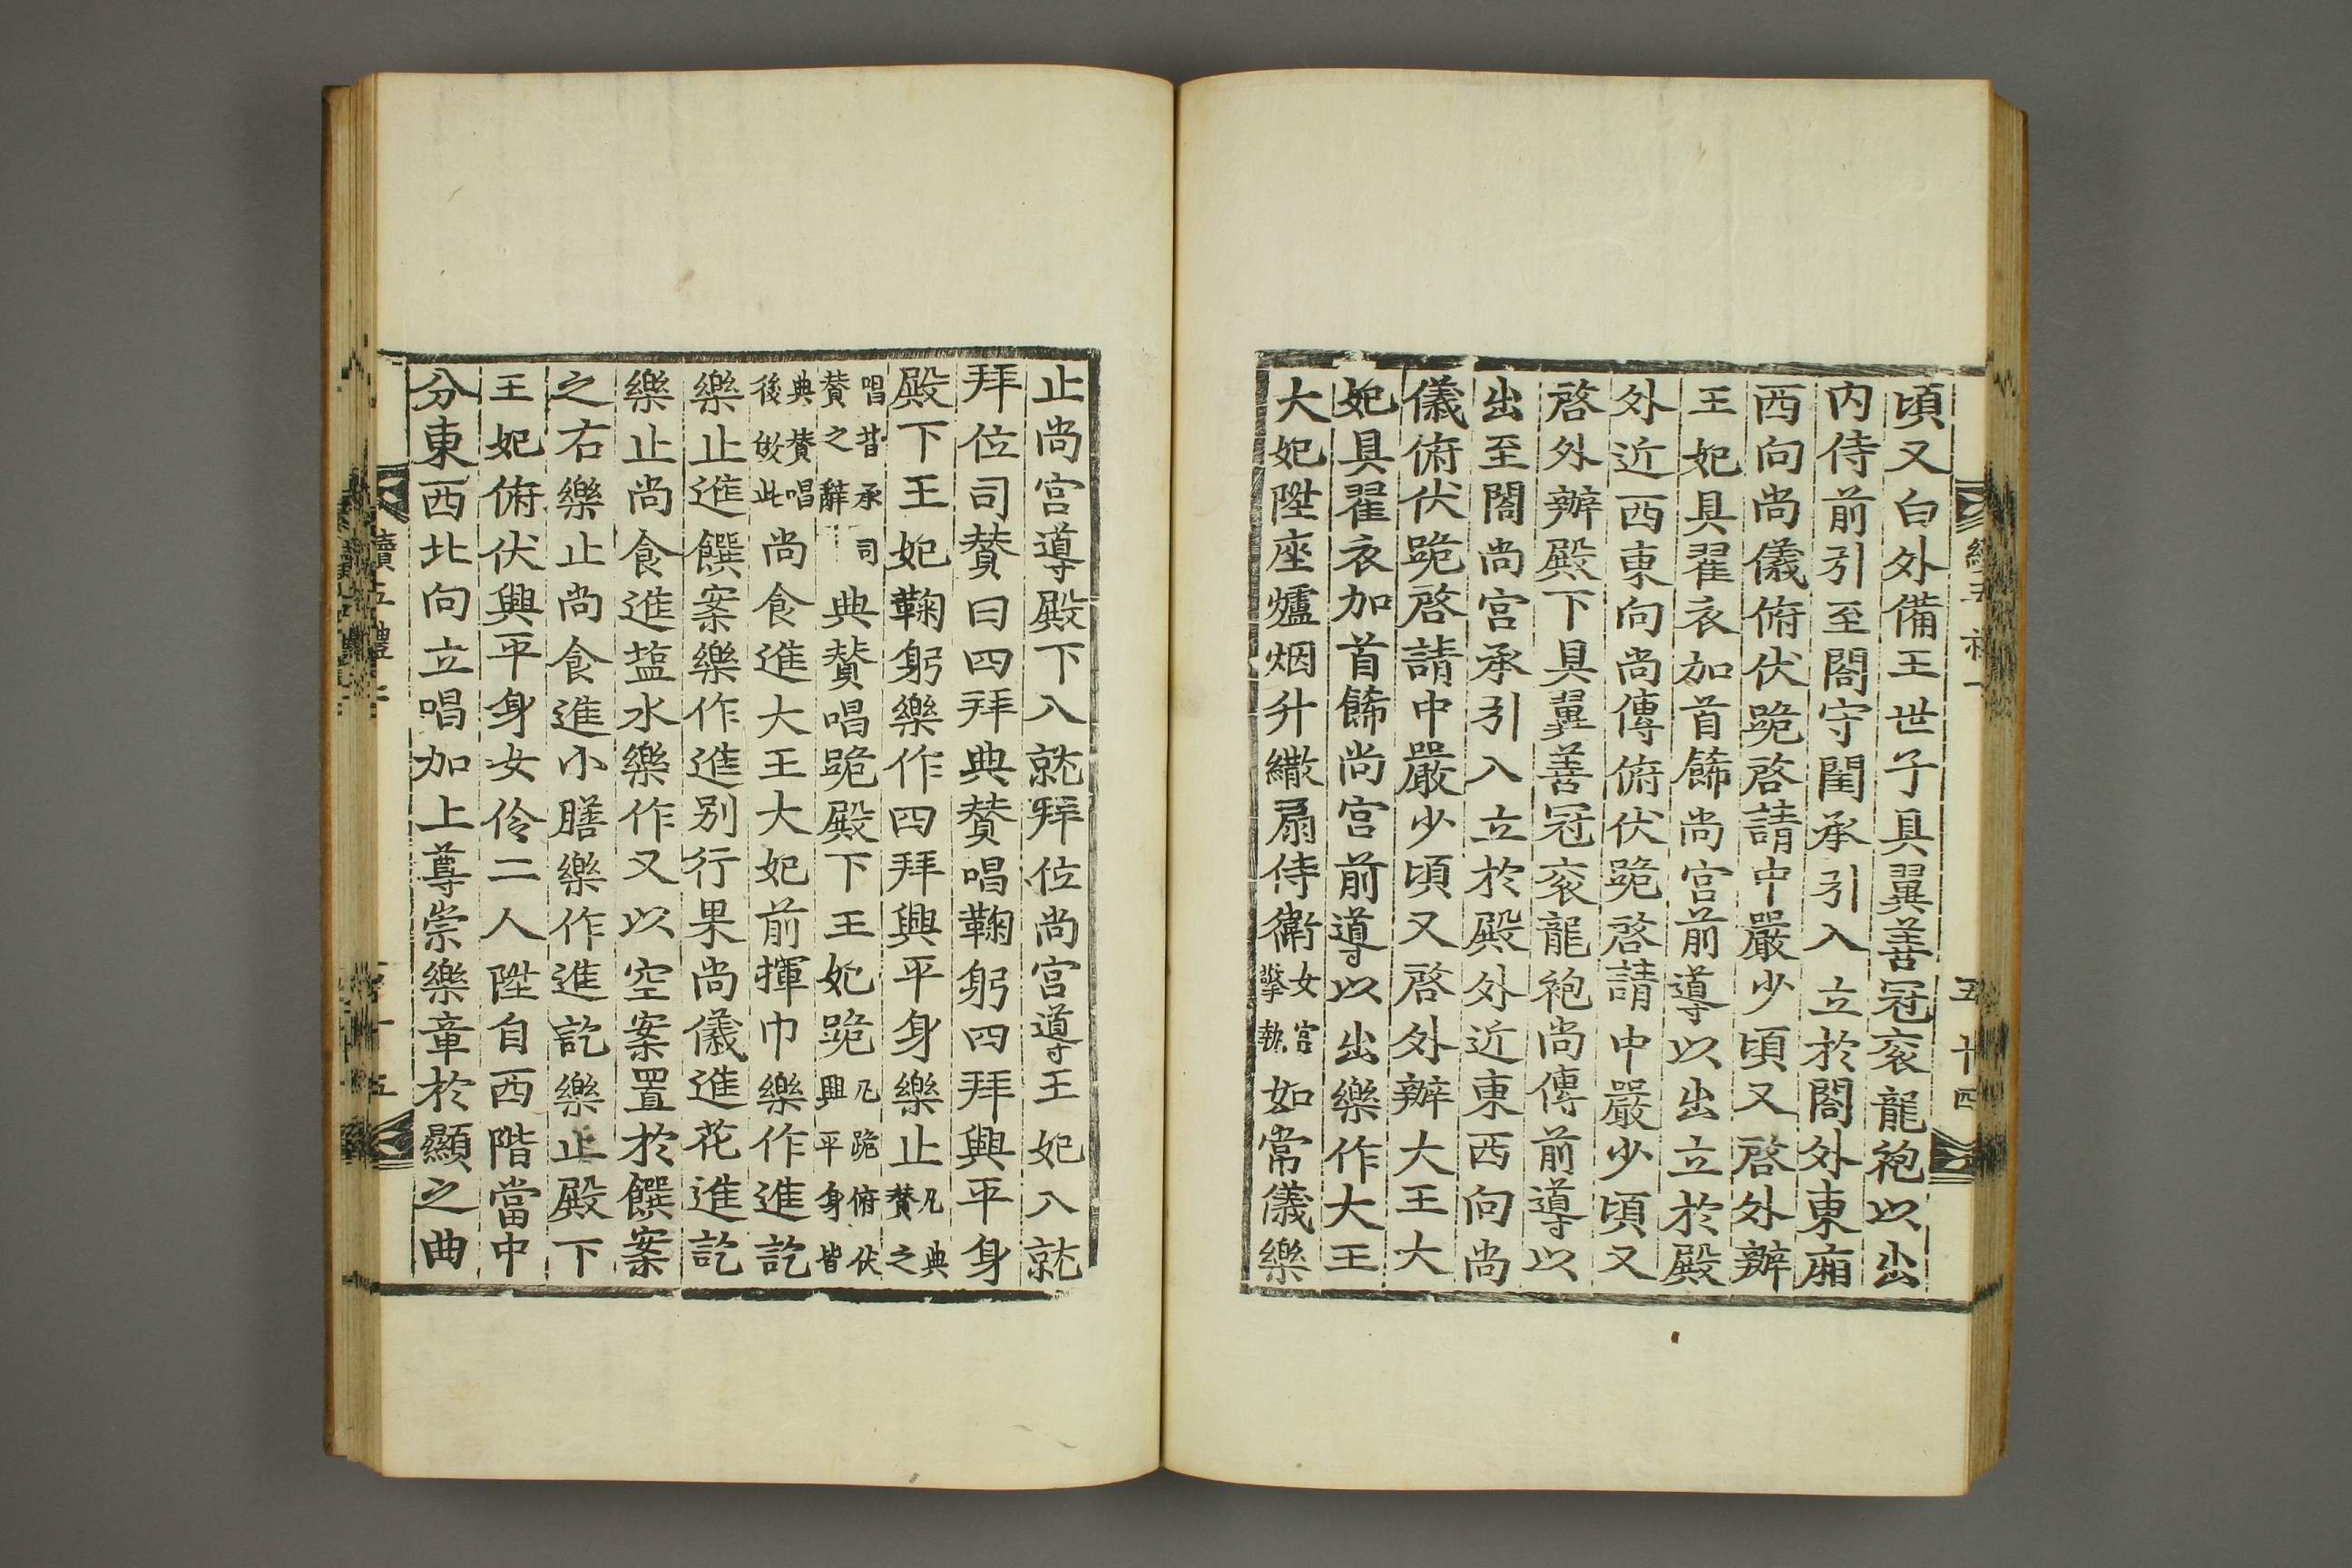 頃又白外備王世子具翼善冠袞龍袍以出
内侍前引至閤守閨承引入立於閤外東廂
西向尚儀俯伏跪啓請中嚴少頃又啓外辦
王妃具翟衣加首餙尚宮前導以出立於殿
外近西東向尚傳俯伏跪啓請中嚴少頃又
啓外辦殿下具翼善冠袞龍袍尚傳前導以
出至閤尚宮承引入立於殿外近東西向尚
儀俯伏跪啓請中嚴少頃又啓外辦大王大
妃具翟衣加首餙尚宮前導以出樂作大王
大妃陞座爐烟升繖扇侍衛女官擎執如常儀樂
五十四
止尚宮導殿下入就拜位尚宮導王妃入就
拜位司贊曰四拜典贊唱鞠躬四拜興平身
殿下王妃鞠躬樂作四拜興平身樂止凡典贊之
唱皆承司贊之辭典贊唱跪殿下王妃跪凡跪俯伏興平身皆
典贊唱後倣此尚食進大王大妃前揮巾樂作進訖
樂止進饌案樂作進別行果尚儀進花進訖
樂止尚食進塩水樂作又以空案置於饌案
之右樂止尚食進小膳樂作進訖樂止殿下
王妃俯伏興平身女伶二人陞自西階當中
分東西北向立唱加上尊崇樂章於顯之曲
續五禮
五